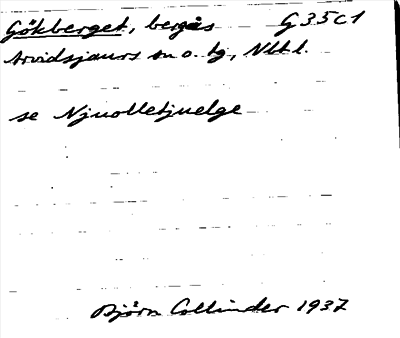 Gökberget, bergås G 35 C 1
Arvidsjaurs sn o. tg, Nbtl.
se Njuolletjuelge
Björn Collinder 1937